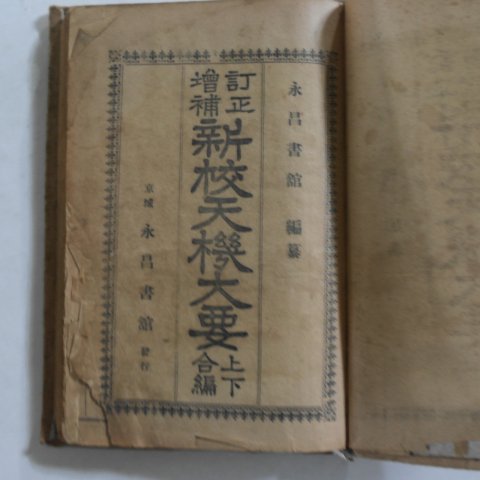 永昌書館 編纂
訂正
增補
新校天機大要
上下
合編
京城 永昌書館 發行